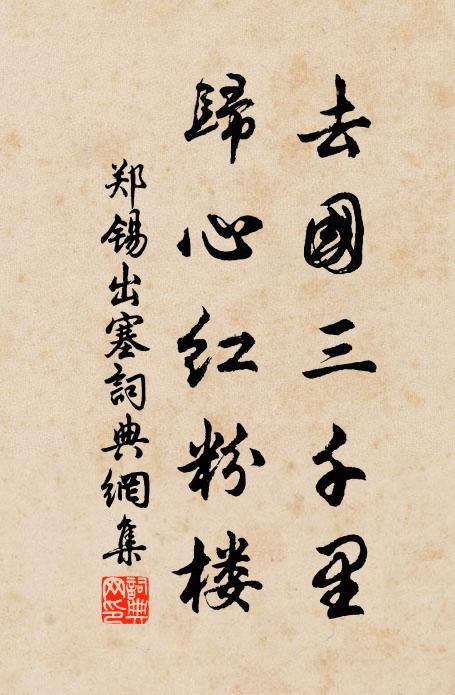 去國三千里
歸心红粉楼
郑锡出塞詞典網集
詞典
网印